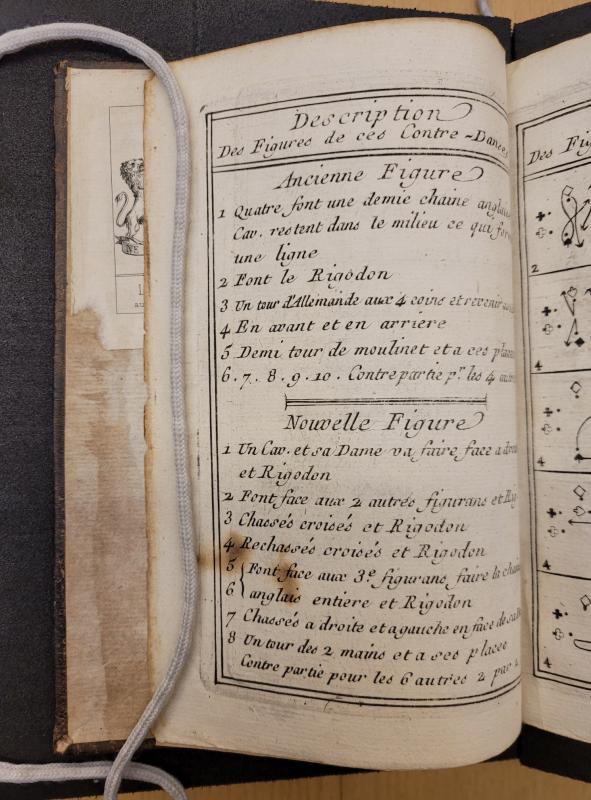 Description
Des Figures de ces Contre-Dances
Ancienne Figure
1 Quatre font une demie chaine
Cav. restent dans le milieu ce qui
une ligne
2 Font le Rigodon
3 Un tour d'Allemande aux 4 coins et revenir
4 En avant et en arriere
5 Demi tour de moulinet et a ces
6. 7. 8. 9. 10. Contre partie pr. les 4
Nouvelle Figure
1 Un Cav. et sa Dame va faire face a
et Rigodon
2 Font face aux 2 autres figurans et
3 Chassés croisés et Rigodon
4 Rechassés croisés et Rigodon
5 Font face aux 3.e figurans, faire la
6 anglais entiere et Rigodon
7 Chassés a droite et a gauche en face de
8 Un tour des 2 mains et a ses places
Contre partie pour les 6 autres 2 par 2
Des
2
4
4
4
4